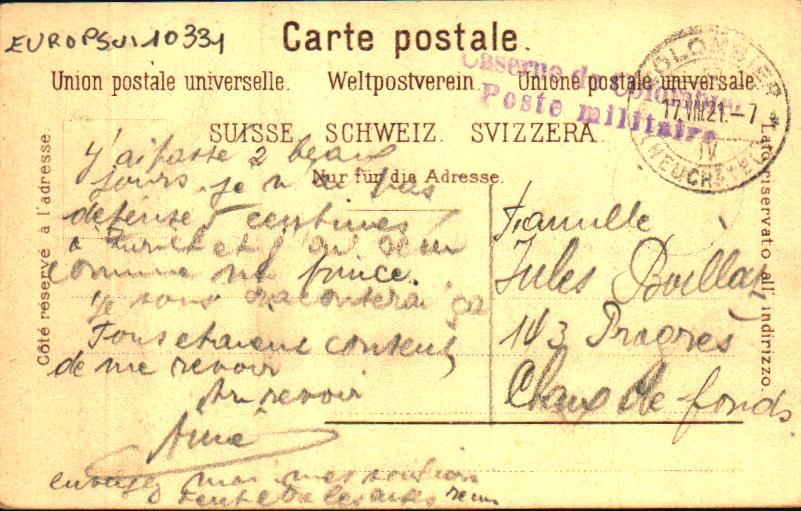 EUROPSUI10331
Carte postale.
Union postale universelle. Weltpostverein. Unione postale universale.
Caserne de Colombier
Poste militaire
COLOMBIER
17.VIII.21.-7
IV
(NEUCHATEL)
SUISSE. SCHWEIZ. SVIZZERA.
Nur für die Adresse.
Côté réservé à l'adresse
Lato riservato all' indirizzo.
J'ai passé 2 beaux
jours je n'ai pas
dépensé 5 centimes
à Zurich et j'ai
comme un prince.
je vous raconterai ça
Tous etaient contents
de me revoir
Au revoir
Aimé
envoyez moi mes
Famille
Jules Boillat
113 Progrès
Chaux de-fonds